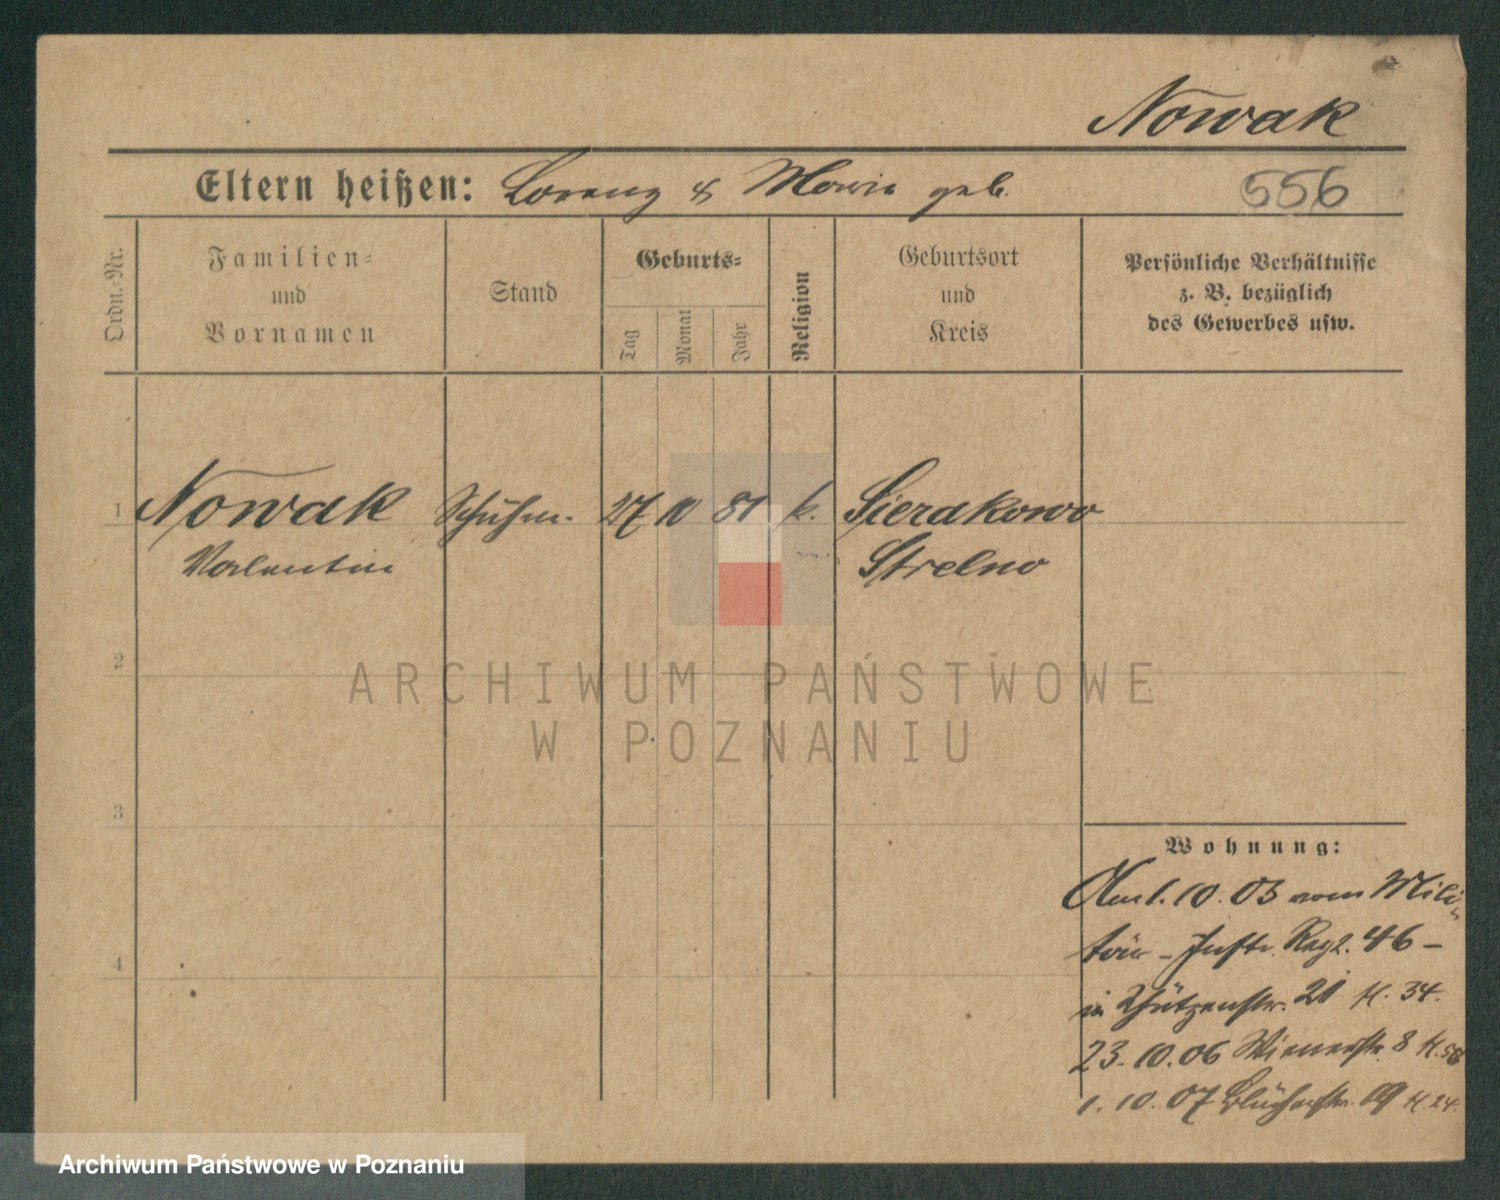 Nowak
Eltern heißen: Lorenz & Marie geb.
556
Ordn.-Nr.
Familien-
und
Vornamen
Stand
Geburts-
Tag
Monat
Jahr
Religion
Geburtsort
und
Kreis
Persönliche Verhältnisse
z. B. bezüglich
des Gewerbes usw.
1 Nowak Schuhm. 27 10 81 k. Sierakowo
Valentin Strelno
2
ARCHIWUM PAŃSTWOWE
W POZNANIU
3
4
Wohnung:
Am 1. 10. 03 vom Mili-
tär - Inftr. Regt. 46 -
in Schützenstr. 21 H. 34.
23. 10. 06 Wienerstr. 8 H. 58
1. 10. 07 Blücherstr. 19 H. 24.
Archiwum Państwowe w Poznaniu